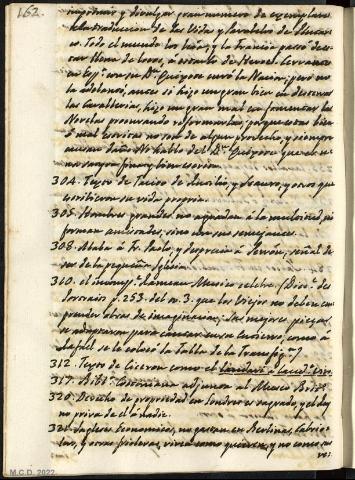 162.
imprimir y divulgar gran numero de exemplares
de la traduccion de las Vidas y Paralelos de Plutar
co. Todo el mundo los leía, y la Francia pasó de
ser llena de locos, à
en Esp.ª con su D.n Quijote curó la Nacion; pero no
la adelantó, antes si hizo un gran bien en desterrar
las Cavallerias, hizo un gran mal en fomentar las
Novelas procurando reformarlas; porque estas bien
ò mal escritas no son de algun provecho, y siempre
causan daño. No hablo del D.n Quijote que es u-
na satyra fina y bien escrita.
304. Texto de Tacito de Rutilio, y Scauro, y otros que
escribieron su vida propria.
305. Hombres grandes no agradan à la multitud, ni
forman amistades, sino con sus semejantes.
308. Alaba à Fr. Paolo, y desprecia à
ser de la pequeña Iglesia.
310. el incomp.e Rameau Musico celebre. (Dicc.º de
p. 253. del n. 3. que los Viejos no deben em
prender obras de imaginacion; Sus mejores piezas,
à
Rafael se le colocó la Tabla de la Transfig.n)
312. Texto de Ciceron como el
317. Bibl.ª Casanatana adjunta al Museo Brit.º
320. Derecho de propriedad en Londres es sagrado, y el Rey
no priva de él à nadie.
321. Ingleses Economicos, no gastan en Berlinas, Cabrio-
les, y otras frioleras, viven como quieren, y no como
M.C.D. 2022